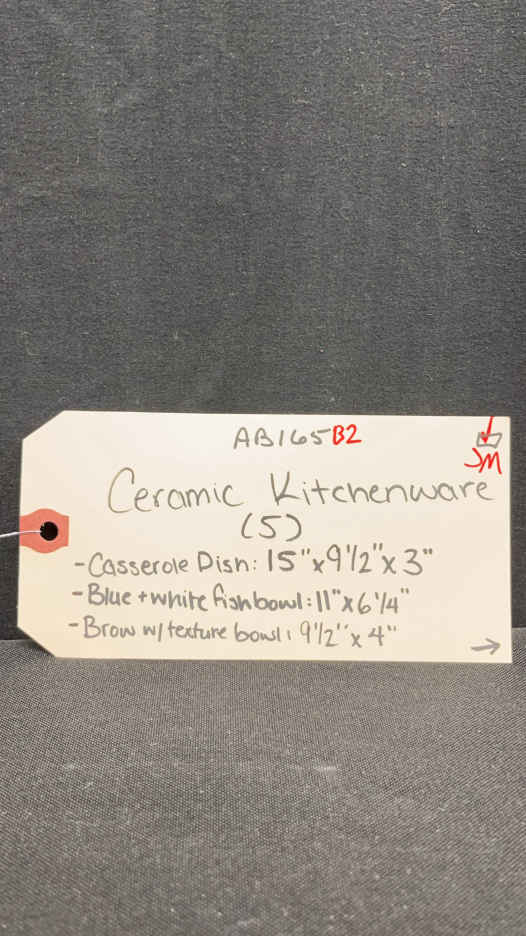 AB165B2
JM
Ceramic Kitchenware
(5)
-Casserole Dish: 15"x9 1/2"x3"
-Blue + white fishbowl: 11"x6 1/4"
-Brow w/ texture bowl: 9 1/2"x4"
→